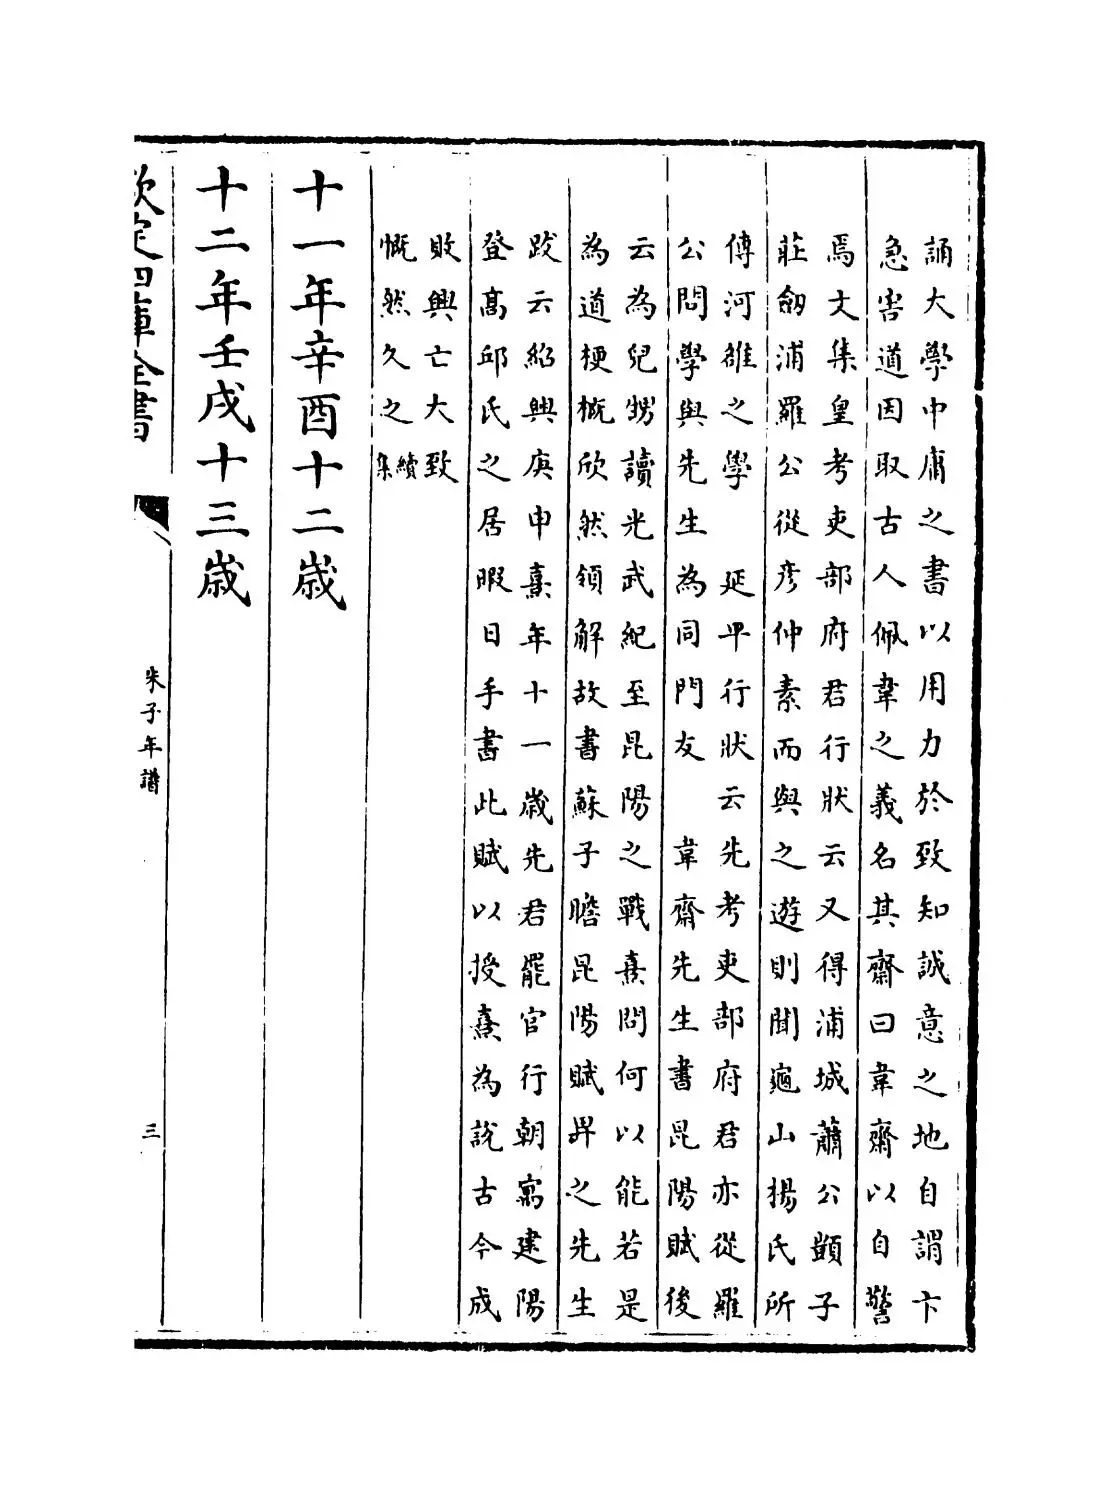 誦大學中庸之書以用力於致知誠意之地自謂卞
急害道因取古人佩韋之義名其齋曰韋齋以自警
焉文集皇考吏部府君行狀云又得浦城蕭公顗子
莊劒浦羅公從彥仲素而與之遊則聞龜山楊氏所
傳河雒之學　延平行狀云先考吏部府君亦從羅
公問學與先生為同門友　韋齋先生書昆陽賦後
云為兒甥讀光武紀至昆陽之戰熹問何以能若是
為道梗概欣然領解故書蘇子瞻昆陽賦畀之先生
跋云紹興庚申熹年十一歲先君罷官行朝寓建陽
登高邱氏之居暇日手書此賦以授熹為說古今成
敗興亡大致
慨然久之續集
十一年辛酉十二歲
十二年壬戌十三歲
欽定四庫全書
朱子年譜
三